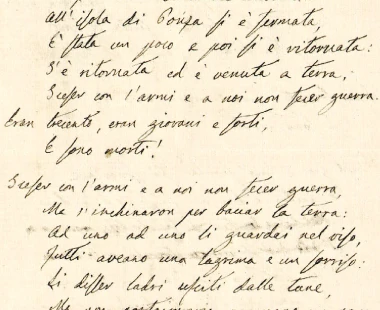 All'isola di Ponza si è fermata,
È stata un poco e poi si è ritornata:
S'è ritornata ed è venuta a terra;
Sceser con l'armi e a noi non fecer guerra.
Eran trecento, eran giovani e forti,
E sono morti!
Sceser con l'armi e a noi non fecer guerra,
Ma s'inchinaron per baciar la terra:
Ad uno ad uno li guardai nel viso,
Tutti aveano una lagrima e un sorriso:
Li disser ladri usciti dalle tane,
Ma non portarono